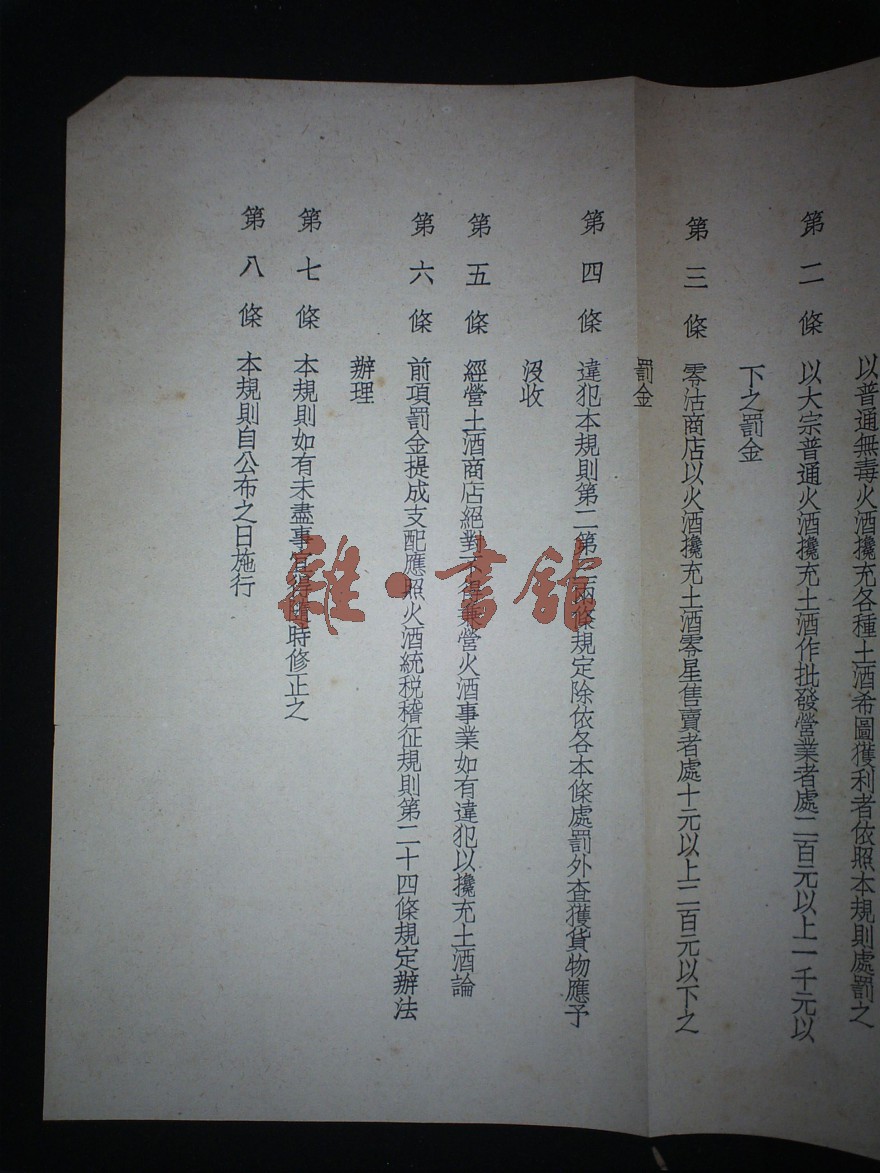 以普通無毒火酒攙充各種土酒希圖獲利者依照本規則處罰之
第二條 以大宗普通火酒攙充土酒作批發營業者處二百元以上一千元以
下之罰金
第三條 零沽商店以火酒攙充土酒零星售賣者處十元以上二百元以下之
罰金
第四條 違犯本規則第二第三兩條規定除依各本條處罰外查獲貨物應予
沒收
第五條 經營土酒商店絕對不得兼營火酒事業如有違犯以攙充土酒論
第六條 前項罰金提成支配應照火酒統稅稽征規則第二十四條規定辦法
辦理
第七條 本規則如有未盡事宜得隨時修正之
第八條 本規則自公布之日施行
雜·書館